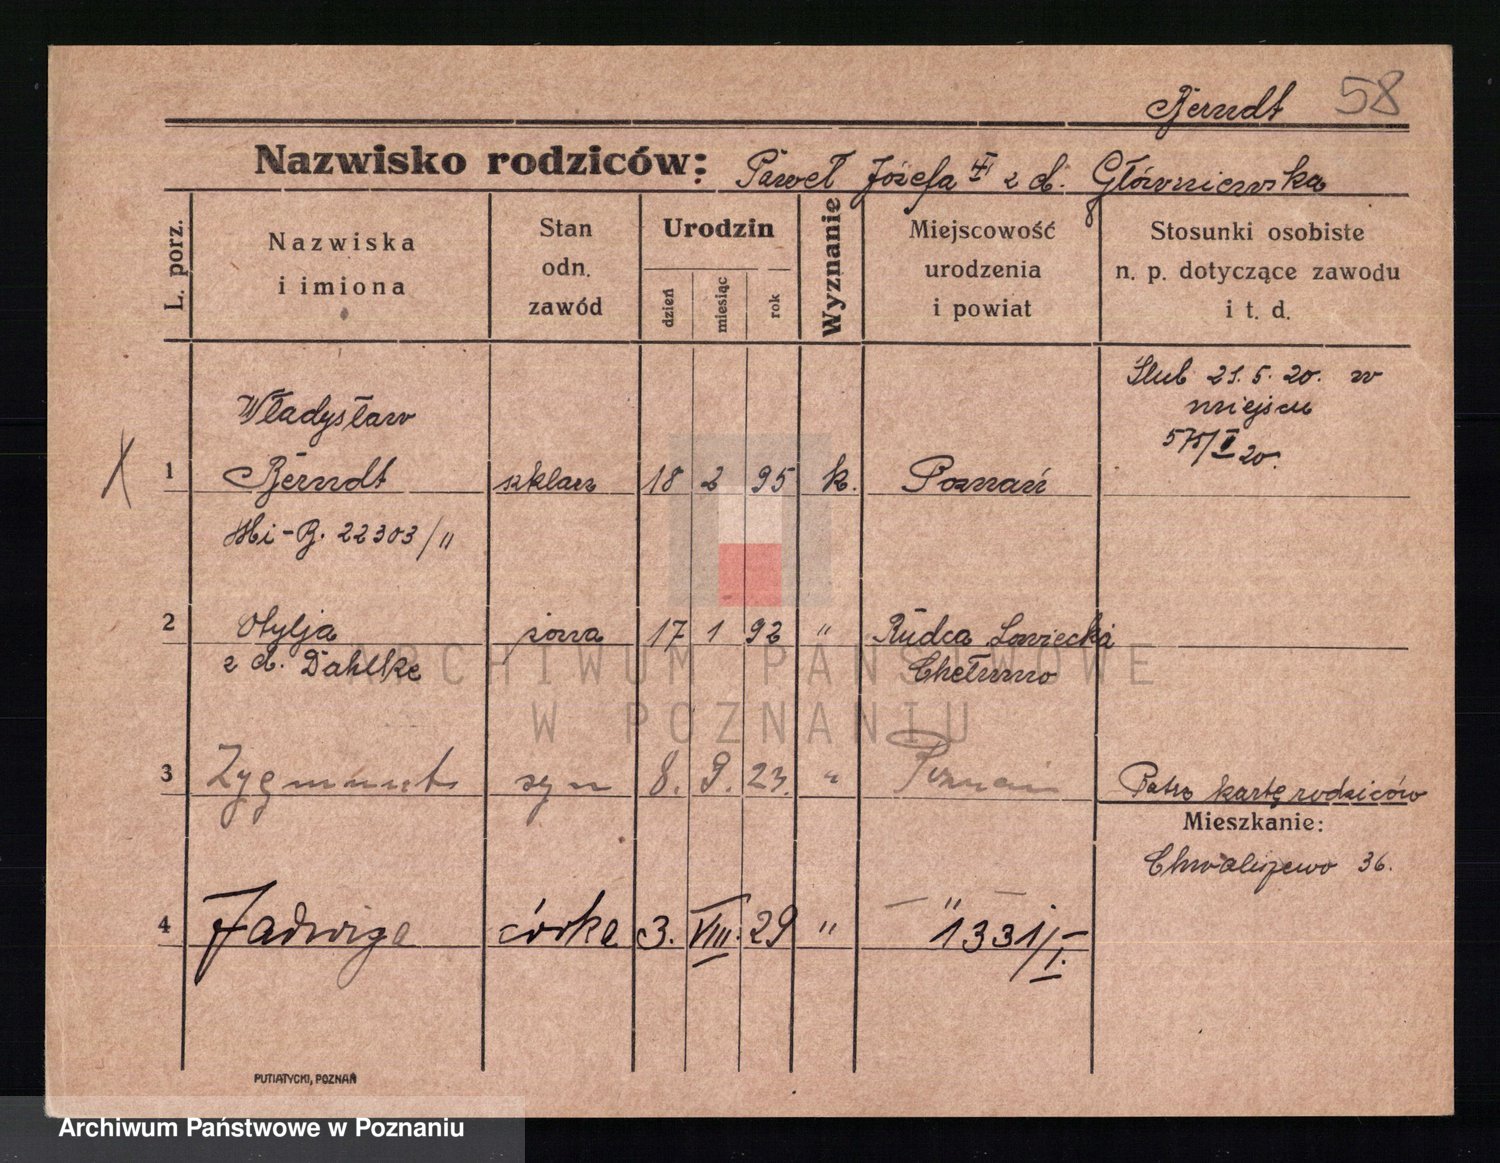 58
Berndt
Nazwisko rodziców: Paweł Józefa z d. Główniewska
L. porz.
Nazwiska i imiona
Stan odn. zawód
Urodzin
dzień miesiąc rok
Wyznanie
Miejscowość urodzenia i powiat
Stosunki osobiste n. p. dotyczące zawodu i t. d.
Ślub 21. 5. 20. w
miejscu
575/II 20.
Władysław
1 Berndt szklarz 18 2 95 k. Poznań
22303/II
2 Otylja żona 17 1 92 " Rudca Łowiecki
z d. Dahlke Chełmno
ARCHIWUM PAŃSTWOWE
W POZNANIU
3 Zygmunt syn 8. 9. 23. " Poznań
Patrz kartę rodziców
Mieszkanie:
Chwaliszewo 36.
4 Jadwiga córka 3. VIII. 29 " — " —
1331/I.
PUTIATYCKI, POZNAŃ
Archiwum Państwowe w Poznaniu